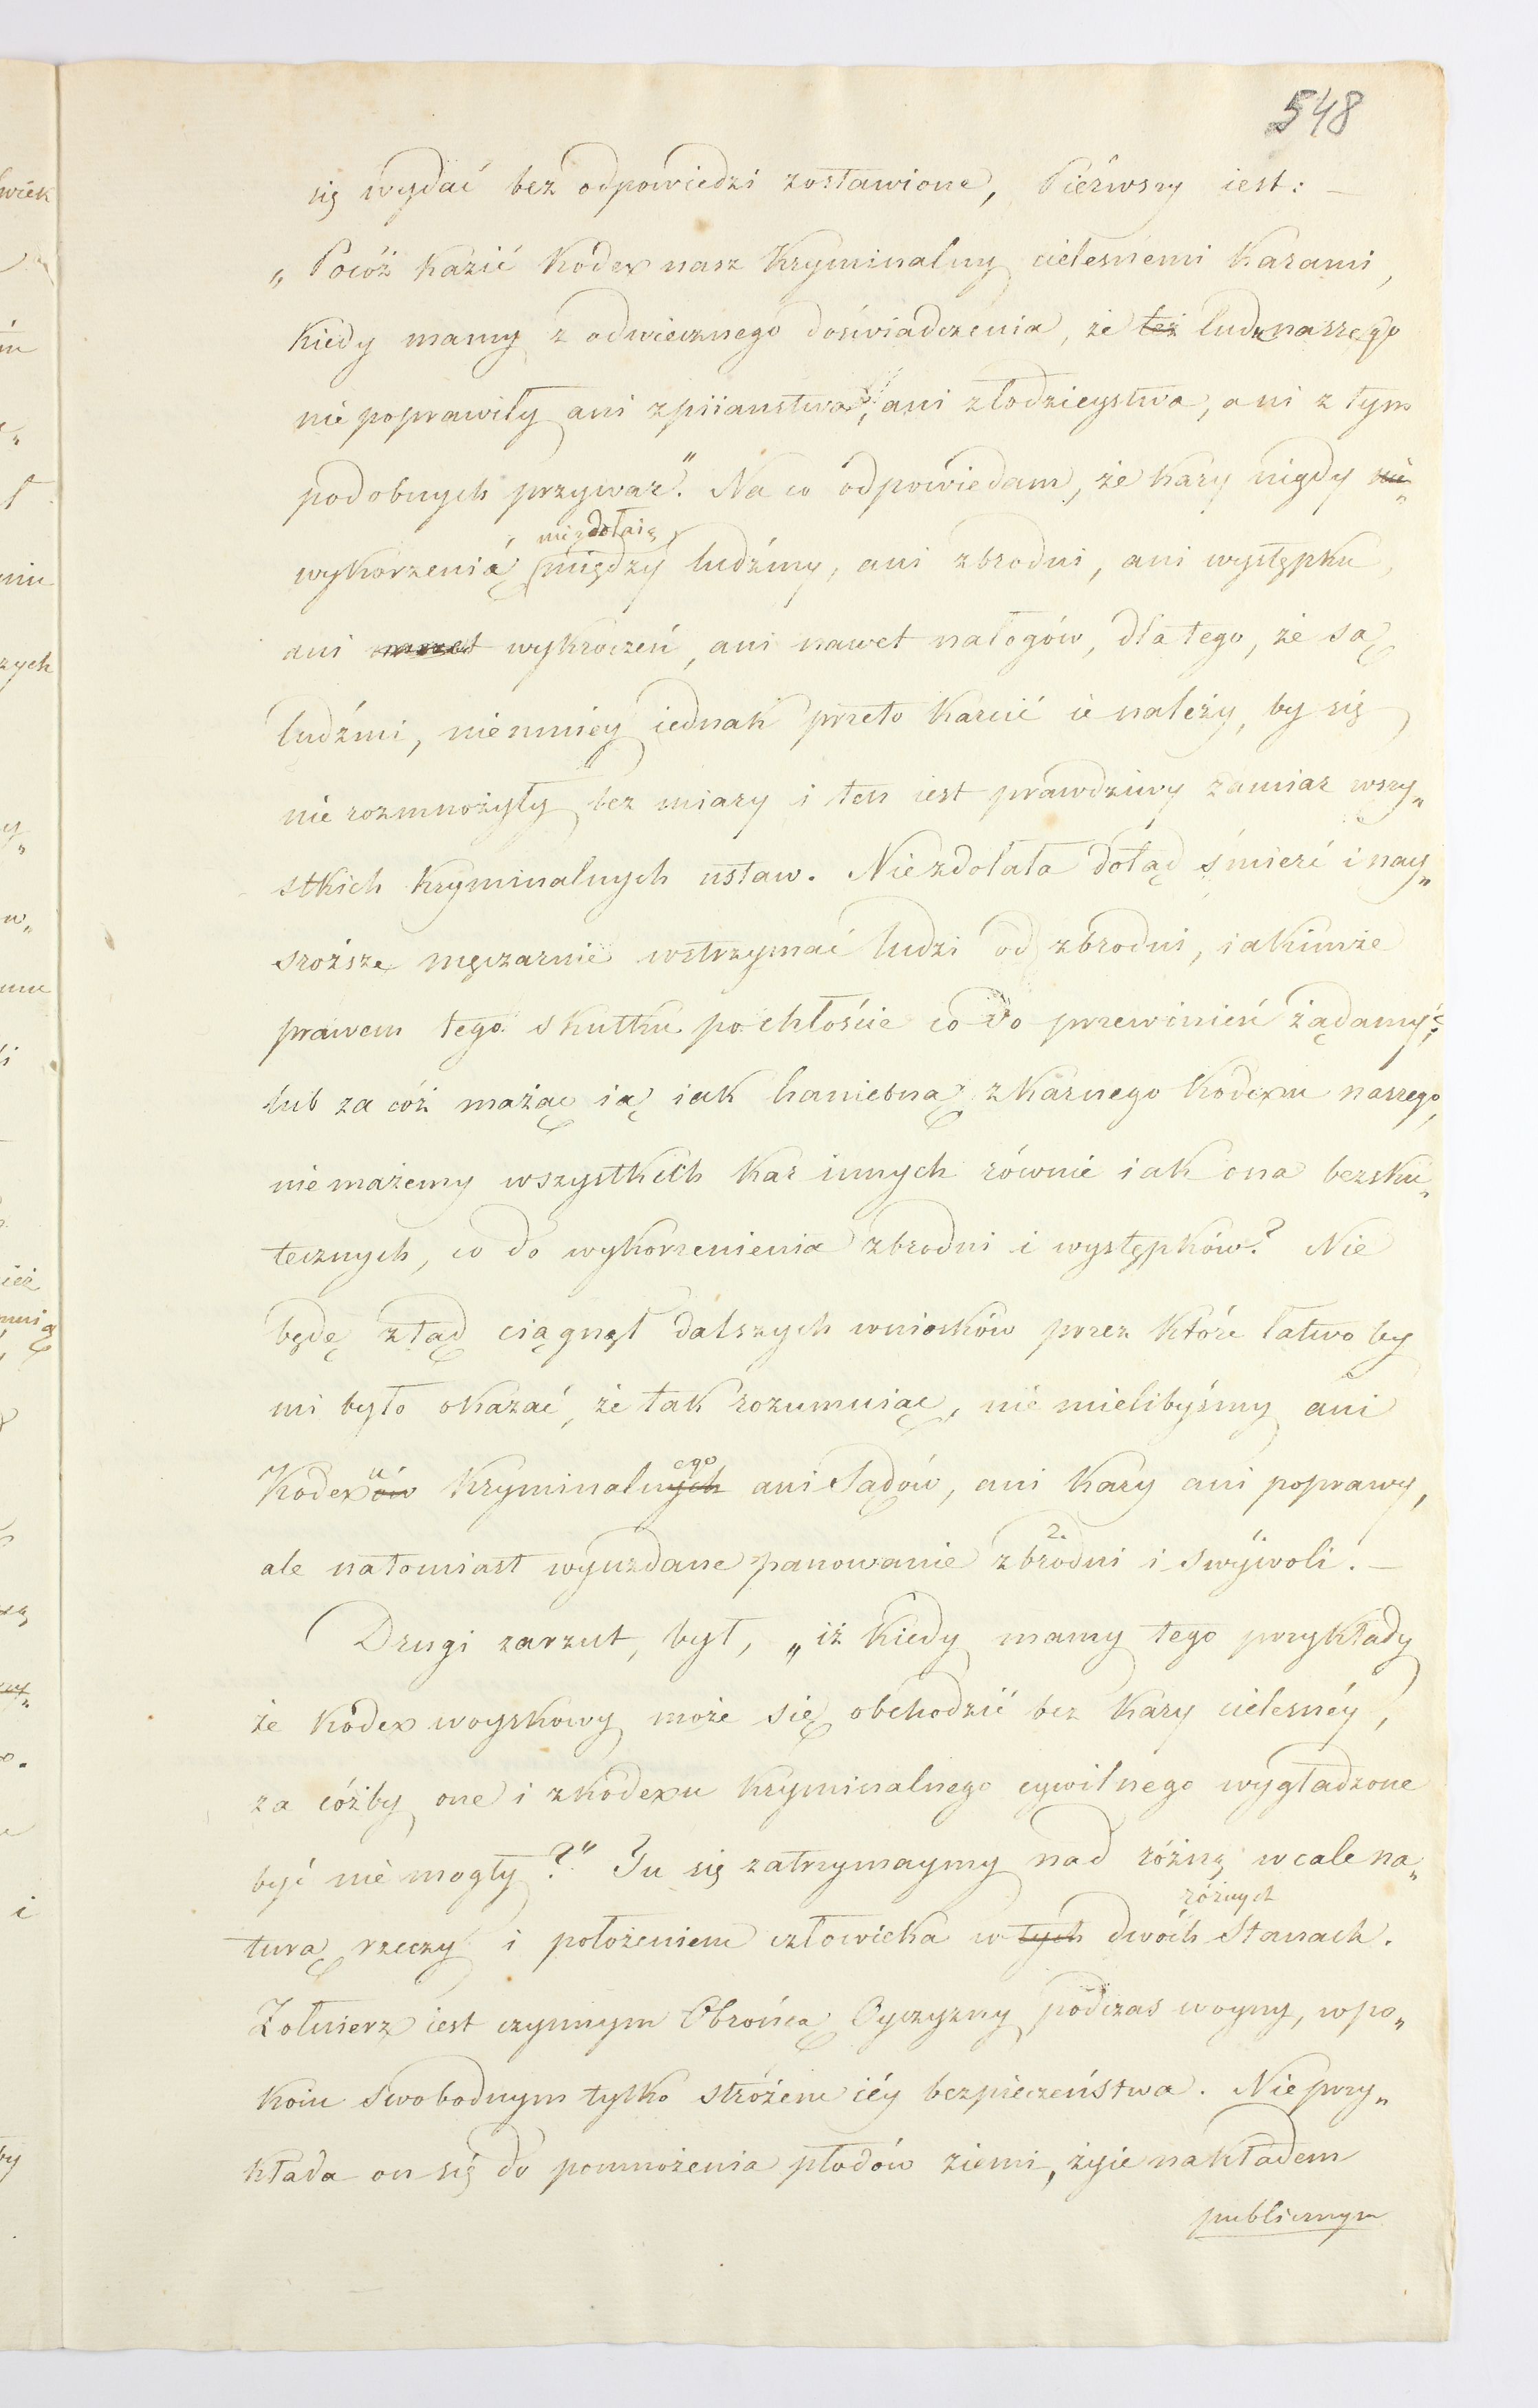 548
się wydać bez odpowiedzi zostawione, Piérwszy iest: —
„Pocóż kazić kodex nasz Kryminalny cielesnemi karami,
kiedy mamy z odwiecznego doświadczenia, że też ludu naszego
nie poprawiły ani z piiaństwa, ani złodzieystwa, ani z tym
podobnych przywar." Na co odpowiedam, że kary nigdy nie„
niezdołaią
wykorzenić między ludźmy, ani zbrodni, ani występku,
ani nawet wykroczeń, ani nawet nałogów, dla tego, że są
ludźmi, niemniey iednak przeto karcić ie należy, by się
nie rozmnożyły bez miary i ten iest prawdziwy zamiar wszy„
stkich kryminalnych ustaw. Niezdołała dotąd śmierć i nay„
sroższe męczarnie wstrzymać ludzi od zbrodni, iakimże
prawem tego skutku po chłoście co do przewinień żądamy?
lub za cóż mażąc ią iak haniebną z karnego Kodexu naszego,
nie mażemy wszystkich kar innych równie iak ona bezsku„
tecznych, co do wykorzenienia zbrodni i występków? Nie
będę ztąd ciągnął dalszych wniosków przez które łatwo by
mi było okazać, że tak rozumuiąc, nie mielibyśmy ani
u ego
Kodexów Kryminalnych ani Sądów, ani kary ani poprawy,
2.
ale natomiast wyuzdane panowanie zbrodni i swywoli. —
Drugi zarzut, był, „iż kiedy mamy tego przykłady
że kodex woyskowy może się obchodzić bez kary cielesnéy,
za cóżby one i z kodexu kryminalnego cywilnego wygładzone
być nie mogły?" Tu się zatrzymaymy nad różną wcale na„
różnych
turą rzeczy i położeniem człowieka w tych dwóch Stanach.
Żołnierz iest czynnym Obrońcą Oyczyzny podczas woyny, w po„
koiu swobodnym tylko stróżem iéy bezpieczeństwa. Nie przy„
kłada on się do pomnożenia płodów ziemi, żyie nakładem
publicznym